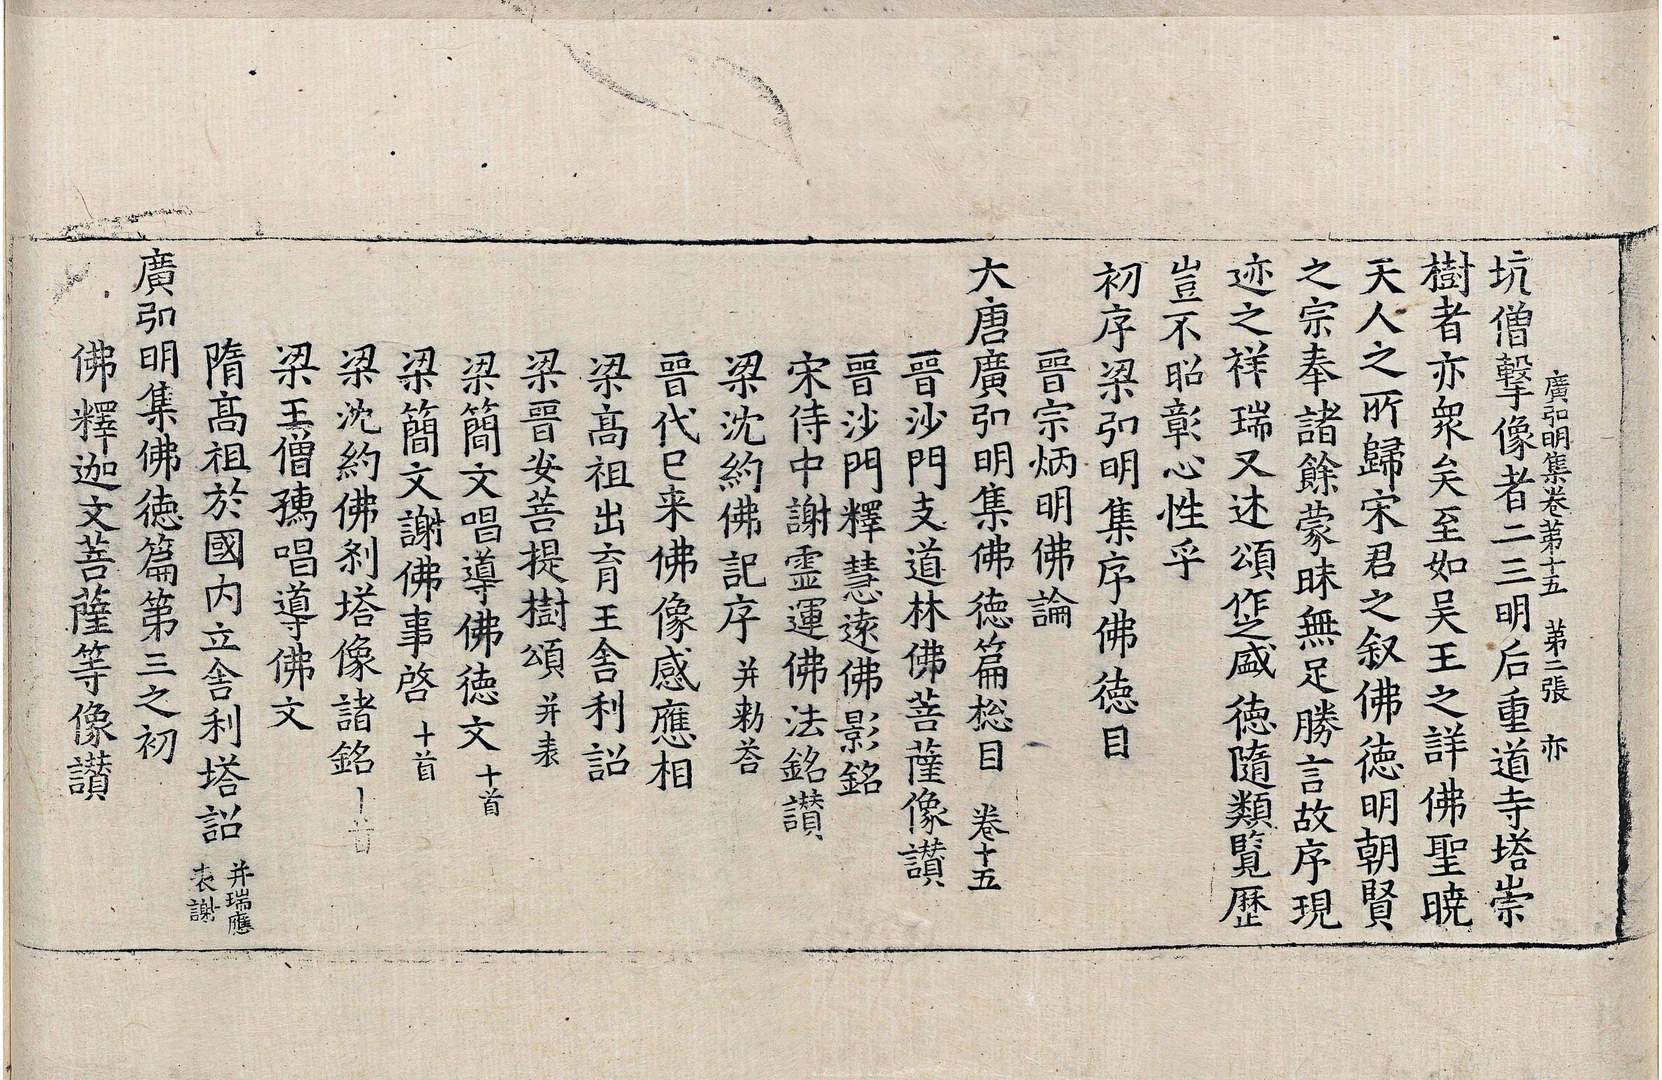 廣弘明集卷苐十五 苐二張 亦
坑僧擊像者二三明后重道寺塔崇
樹者亦衆矣至如吴王之詳佛聖曉
天人之所歸宋君之叙佛徳明朝賢
之宗奉諸餘蒙昧無足勝言故序現
迹之祥瑞又述頌作之盛徳隨類覽歷
豈不昭彰心性乎
初序梁弘明集序佛徳目
晉宗炳明佛論
大唐廣弘明集佛徳篇捴目 卷十五
晉沙門支道林佛菩薩像讃
晉沙門釋慧遠佛影銘
宋侍中謝靈運佛法銘讃
梁沈約佛記序 并勑荅
晉代已来佛像感應相
梁高祖出育王舎利詔
梁晉安菩提樹頌 并表
梁簡文唱導佛徳文 十首
梁簡文謝佛事啓 十首
梁沈約佛刹塔像諸銘 首
梁王僧孺唱導佛文
隋高祖於國内立舎利塔詔 并瑞應表謝
廣弘明集佛徳篇第三之初
佛釋迦文菩薩等像讃